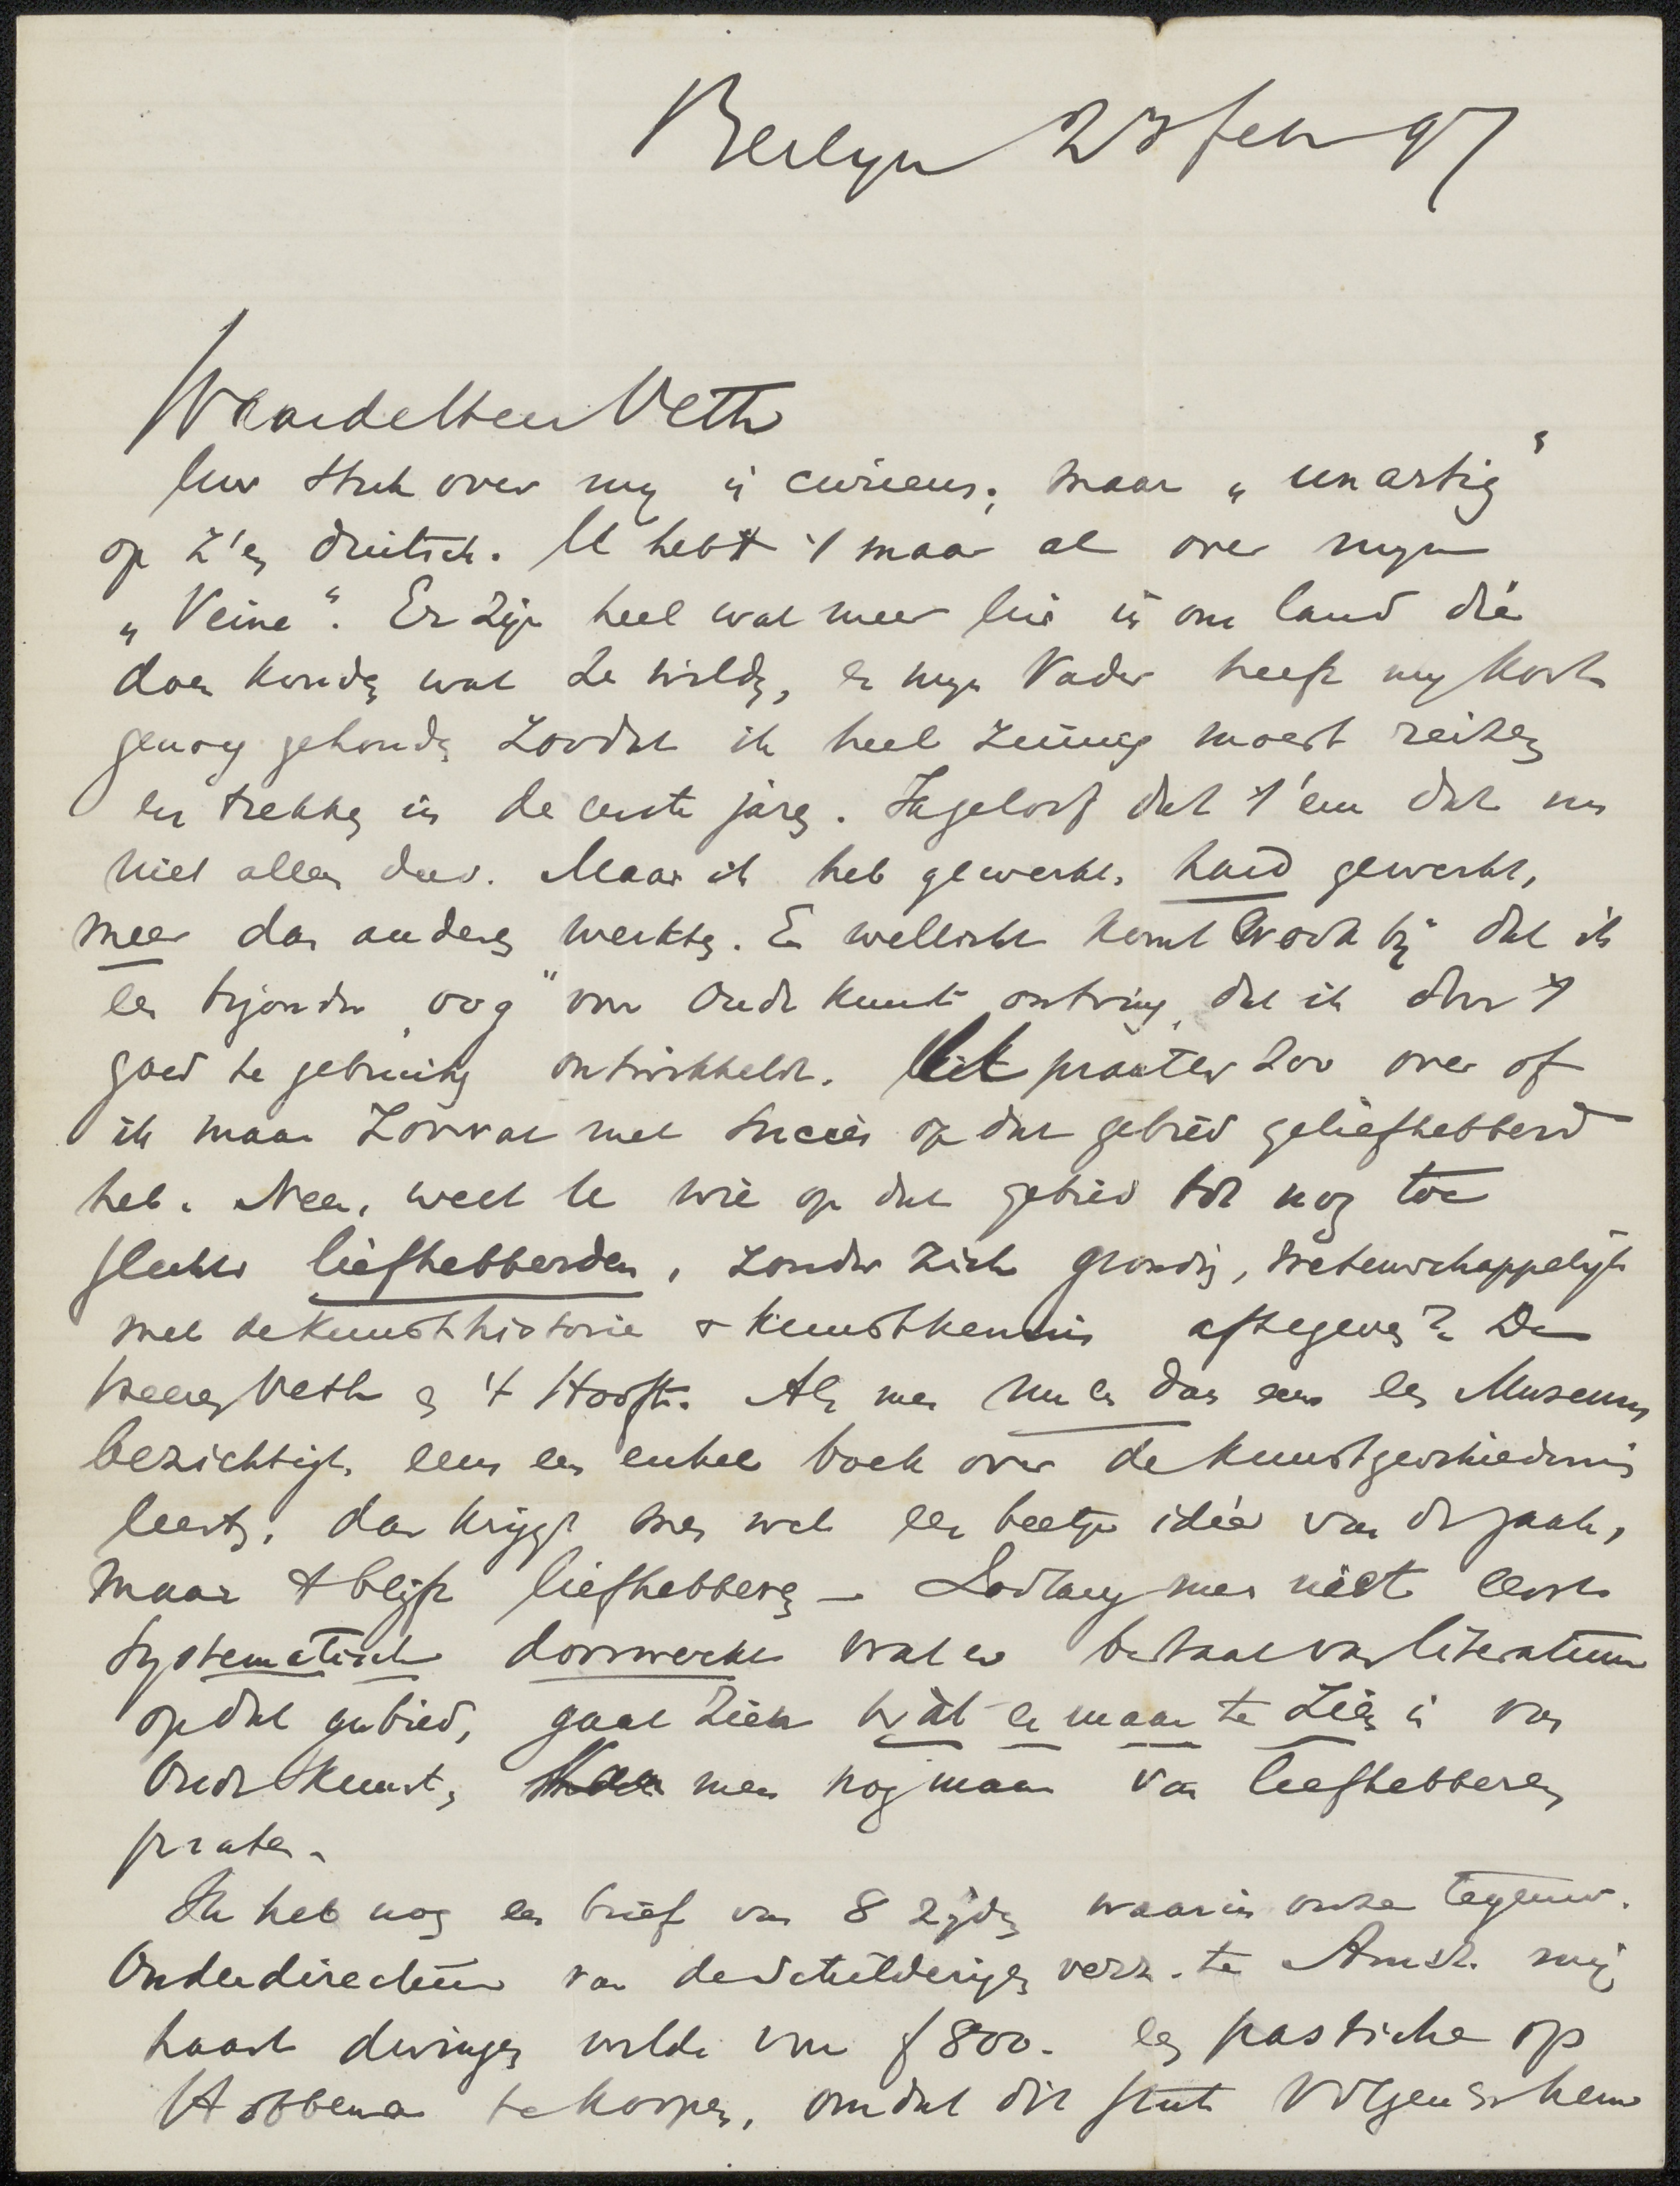 Berlyn 23 feb 97
Waarde Heer Veth
Uw stuk over my is curieus; maar „unartig"
op z'n duitsch. U hebt 't maar al over myn
„Veine". Er zyn heel wat meer lui in ons land die
doen konden wat ze wilden, en myn Vader heeft my kort
genoeg gehouden zoodat ik heel zuinig moest reizen
en trekken in de eerste jaren. Ik geloof dat 't 'em dat nu
niet alleen deed. Maar ik heb gewerkt, hard gewerkt,
meer dan anderen werkten. En wellicht komt er ook bij dat ik
een byzonder „oog" voor Oude kunst ontving, dat ik door 't
goed te gebruiken ontwikkelde. U praat er zoo over of
ik maar zoowat met succes op dat gebied geliefhebberd
heb. Neen, weet U wie op dat gebied tot nog toe
slechts liefhebberden, zonder zich grondig, wetenschappelyk
met de kunsthistorie & kunstkennis af te geven? De
heeren Veth en 't Hooft. Als men nu en dan eens een Museum
bezichtigt, eens een enkel boek over de kunstgeschiedenis
leest, dan krygt men wel een beetje idée van de zaak,
maar 't blyft liefhebberen – Zoolang men niet eerst
systematisch doorwerkt wat er bestaat van literatuur
op dat gebied, gaat zien wàt er maar te zien is van
Oude Kunst, men nog maar van liefhebberen
praten.
Ik heb nog een brief van 8 zyden waarin onze tegenw.
Onderdirecteur van de Schilderyen verz. te Amst. mij
haast dwingen wilde voor f 800.- een pastiche op
Hobbema te koopen, omdat dit stuk volgens hem